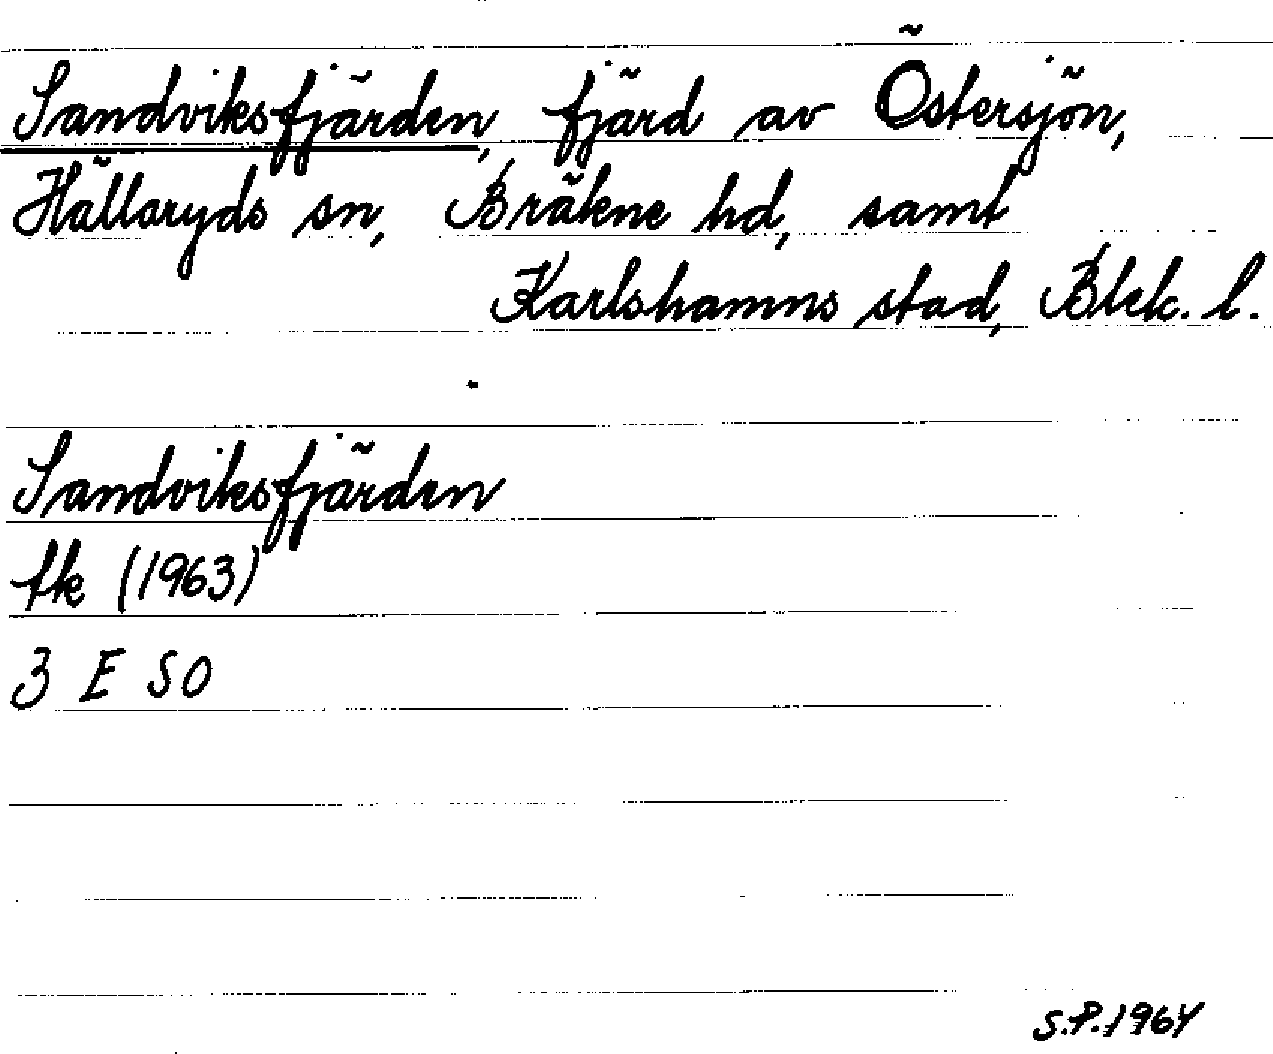 Sandviksfjärden, fjärd av Östersjön,
Hällaryds sn, Bräkne hd, samt
Karlshamns stad, Blek. l.
Sandviksfjärden
tk (1963)
3 E SO
S.P.1964